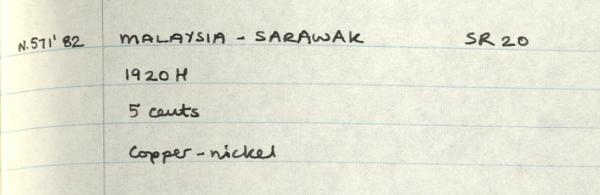 N.571'82 MALAYSIA - SARAWAK SR 20
1920 H
5 cents
Copper-nickel